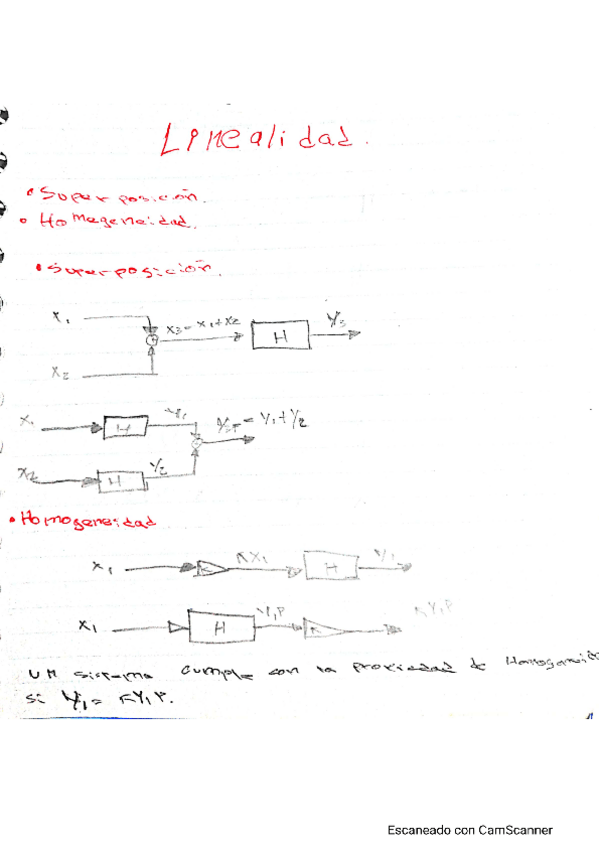 Linealidad.
• Superposición.
• Homogeneidad.
• Superposición.
X1
X3 = X1+X2
H
Y3
X2
X1
H
Y1
= Y1+Y2
X2
H
Y2
• Homogeneidad
X1
KX1
H
Y1
X1
H
Y1P
K
KY1P
Un sistema cumple con la propiedad de Homogeneid
si Y1 = KY1P.
Escaneado con CamScanner